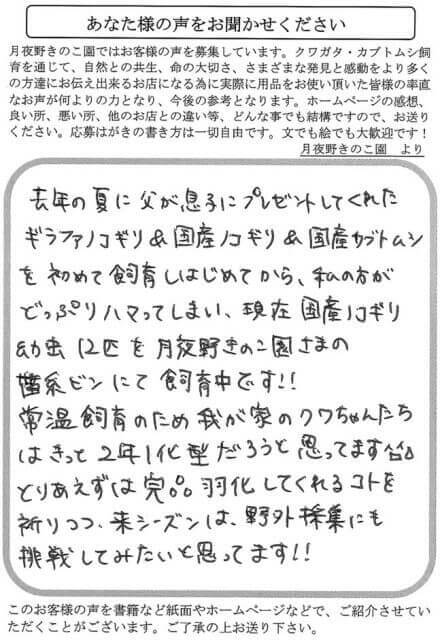 あなた様の声をお聞かせください
月夜野きのこ園ではお客様の声を募集しています。クワガタ・カブトムシ飼
育を通じて、自然との共生、命の大切さ、さまざまな発見と感動をより多く
の方達にお伝え出来るお店になる為に実際に用品をお使い頂いた皆様の率直
なお声が何よりの力となり、今後の参考となります。ホームページの感想、
良い所、悪い所、他のお店との違い等、どんな事でも結構ですので、お送り
ください。応募はがきの書き方は一切自由です。文でも絵でも大歓迎です！
月夜野きのこ園　より
去年の夏に父が息子にプレゼントしてくれた
ギラファノコギリ&国産ノコギリ&国産カブトムシ
を初めて飼育しはじめてから、私の方が
どっぷりハマってしまい、現在国産ノコギリ
幼虫12匹を月夜野きのこ園さまの
菌糸ビンにて飼育中です!!
常温飼育のため我が家のクワちゃんたち
はきっと2年1化型だろうと思ってます
とりあえずは完品羽化してくれるコトを
祈りつつ、来シーズンは、野外採集にも
挑戦してみたいと思ってます!!
このお客様の声を書籍など紙面やホームページなどで、ご紹介させてい
ただくことがございます。ご了承の上お送り下さい。